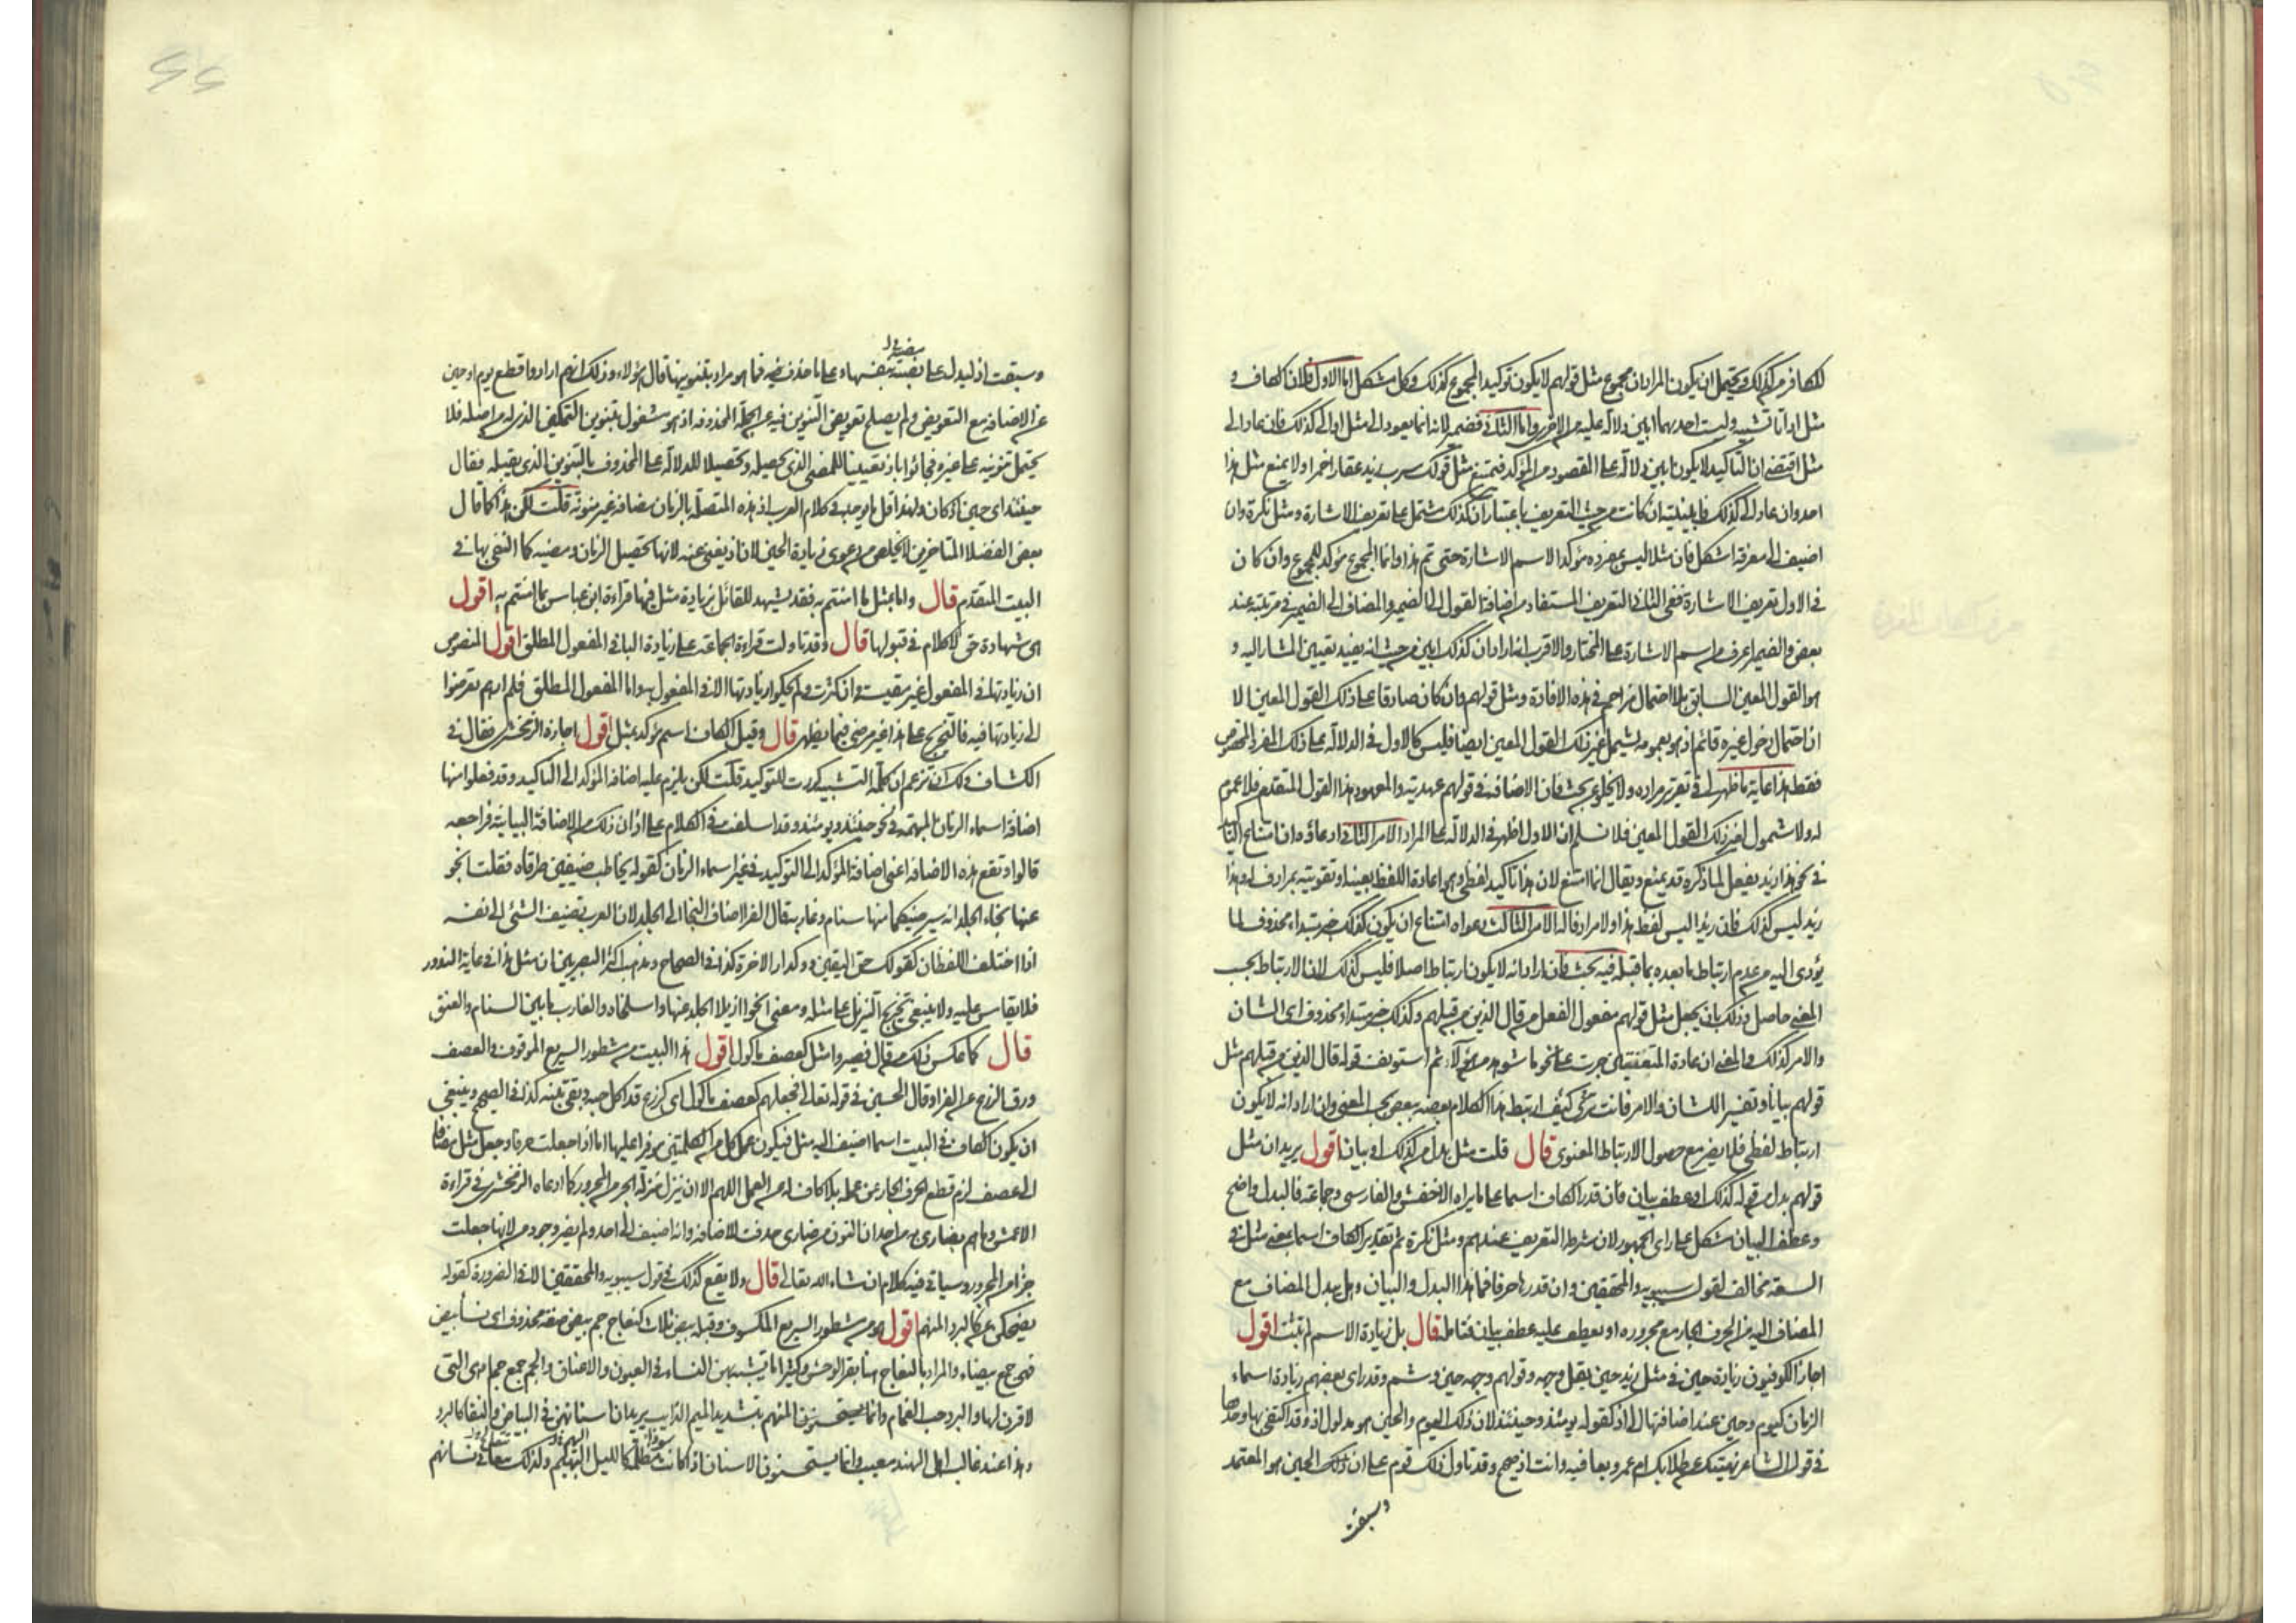 للكافر من كذلك ويحتمل ان يكون المراد ان مجموع مثل قولهم لا يكون توكيدا لمجموع كذلك وكل مشكل اما الاول فلان الكاف و
مثل اداتا تشبيه وليست احديهما ابين دلالة عليه من الاخرى واما الثاني فضمير لانه انما يعود الى مثل او الى كذلك فان عاد الى
مثل اقتضى ان التاكيد لا يكون ابين دلالة على المقصود من المؤكد فيمتنع مثل قولك شرب زيد عقارا خمرا ولا يمنع مثل هذا
احد وان عاد الى كذلك فابينيته ان كانت من حيث التعريف باعتبار ان كذلك مشتمل على تعريف الاشارة ومثل نكرة وان
اضيف الى معرفة اشكل فان مثلا ليس بمفرده مؤكدا لاسم الاشارة حتى تم هذا وانما المجموع مؤكد للمجموع وان كان
في الاول تعريف الاشارة ففي الثاني التعريف المستفاد من اضافة القول الى الضمير والمضاف الى الضمير في مرتبته عند
بعض والضمير اعرف من اسم الاشارة على المختار والاقرب انه اراد ان كذلك ابين من حيث انه يفيد تعيين المشار اليه و
هو القول المعين السابق بلا احتمال مزاحم في هذه الافادة ومثل قولهم وان كان صادقا على ذلك القول المعين الا
ان احتمال دخول غيره قائم اذ هو بعمومه يشمل غير ذلك القول المعين ايضا فليس كالاول في الدلالة على ذلك المفرد المخصوص
فقط هذا غاية ما ظهر لي في تقرير مراده ولا يخلو عن بحث فان الاضافة في قولهم عهدية والمعهود هذا القول المتقدم فلا عموم
له ولا شمول لغير ذلك القول المعين فلا نسلم ان الاول اظهر في الدلالة على المراد الامر الثاني ادعاؤه ان امتناع التاكيد
في نحو هذا زيد يفعل لما ذكره قد يمنع ويقال انما امتنع لان هذا تاكيد لفظي وهو اعادة اللفظ بعينه او تقويته بمرادفه وهذا
زيد ليس كذلك فان زيدا ليس لفظ هذا ولا مرادفا له الامر الثالث دعواه امتناع ان يكون كذلك خبر مبتداء محذوف لما
يؤدى اليه من عدم ارتباط ما بعده بما قبله فيه بحث فان اراد انه لا يكون ارتباط اصلا فليس كذلك لان الارتباط بحسب
المعنى حاصل وذلك بان يجعل مثل قولهم مفعول الفعل من قال الذين من قبلهم وكذلك خبر مبتداء محذوف اى الشان
والامر كذلك والمعنى ان عادة المتعنتين جرت على نحو ما شوهد من هؤلاء ثم استونف قوله قال الذين من قبلهم مثل
قولهم بيانا وتفسيرا للشان والامر فانت ترى كيف ارتبط هذا الكلام بعضه ببعض بحسب المعنى وان اراد انه لا يكون
ارتباط لفظي فلا يضر مع حصول الارتباط المعنوى قال قلت مثل بدل من كذلك او بيان اقول يريد ان مثل
قولهم بدل من قوله كذلك او عطف بيان فان قدر الكاف اسما على ما يراه الاخفش والفارسى وجماعة فالبدل واضح
وعطف البيان مشكل على راى الجمهور لان شرط التعريف عندهم ومثل نكرة ثم تقدير الكاف اسما بمعنى مثل في
السعة مخالف لقول سيبويه والمحققين وان قدرنا حرفا فما هذا البدل والبيان وهل يبدل المضاف مع
المضاف اليه من الحرف الجار مع مجروره او يعطف عليه عطف بيان فتامله قال بل زيادة الاسم لم تثبت اقول
اجاز الكوفيون زيادة حين في مثل زيد حين بقل وجهه وقولهم وجهه حين وشم وقد راى بعضهم زيادة اسماء
الزمان كيوم وحين عند اضافتها الى اذ كقوله يومئذ وحينئذ لان ذلك اليوم والحين هو مدلول اذ وقد اكتفى بها وحدها
في قول الشاعر نهيتك عن طلابك ام عمرو بعافية وانت اذ صحيح وقد تاول ذلك قوم على ان ذلك الحين هو المعتمد
وسيقت
وسيقت اذ ليدل على مضيته بنفسها وعلى ما حذف فيه فما هو مراد بتنوينها قال هؤلاء وذلك انهم ارادوا قطع يوم او حين
عن الاضافة مع التعويض ولم يصلح تعويض التنوين فيه عن الجملة المحذوفة اذ هو مشغول بتنوين التمكين الذى له من اصله فلا
يحتمل تنوينه على غيره فجاؤا باذ تعيينا للمضى الذى تحصيله وتحصيلا للدلالة على المحذوف بالتنوين الذى يقبله فقال
حينئذ اى حين اذ كان ولهذا قل ما يوجد في كلام العرب اذ هذه المتصلة بالزمان مضافة غير منونة قلت لكن هذا كما قال
بعض الفضلا المتاخرين لا يخلص من دعوى زيادة الحين لان اذ يغنى عنه لانها تحصيل الزمان ومضيه كما اكتفى بها في
البيت المتقدم قال واما بمثل ما امنتم به فقد يشهد للقائل بزيادة مثل فيها قراءة ابن عباس بما امنتم به اقول
هى شهادة حق لا كلام في قبولها قال وقد تاولت قراءة الجماعة على زيادة البا في المفعول المطلق اقول المنصوص
ان زيادتها في المفعول غير مقيسة وان كثرت ولم يحكوا زيادتها الا في المفعول به واما المفعول المطلق فلم ارهم تعرضوا
الى زيادتها فيه فالتخريج على هذا غير مرضى فيما يظهر قال وقيل الكاف اسم مؤكد بمثل اقول اجازه الزمخشرى فقال في
الكشاف ولك ان تزعم ان كلمة التشبيه كررت للتوكيد قلت لكن يلزم عليه اضافة المؤكد الى التاكيد وقد فعلوا منها
اضافة اسماء الزمان المبهمة في نحو حينئذ ويومئذ وقد اسلفت في الكلام على اذ ان ذلك من الاضافة البيانية فراجعه
قالوا وتقع هذه الاضافة اعنى اضافة المؤكد الى التوكيد في غير اسماء الزمان كقوله يخاطب ضيفين طرقاه فقلت انجو
عنها نجاء الجلد انه سيرضيكما منها سنام وغاربه قال الفرا اضاف النجا الى الجلد لان العرب تضيف الشئ الى نفسه
اذا اختلف اللفظان كقولك حق اليقين وولدار الاخرة كذا في الصحاح ومذهب اكثر البصريين ان مثل هذا في غاية الندور
فلا يقاس عليه ولا ينبغى تخريج التنزيل على مثله ومعنى انجوا ازيلا الجلد عنها واسلخاه والغارب ما بين السنام والعنق
قال كما عكس ذلك من قال فصيروا مثل كعصف ماكول اقول هذا البيت من مشطور السريع الموقوف والعصف
ورق الزرع عن الفرا وقال الحسن في قوله تعالى فجعلهم كعصف ماكول اى كزرع قد اكل حبه وبقى تبنه كذا في الصحاح وينبغى
ان يكون الكاف في البيت اسما اضيف اليه مثل فيكون عمل كل من الكلمتين موفرا عليها اما اذا جعلت حرفا وجعل مثل مضافا
الى عصف لزم قطع الحرف الجار عن عمله بلا كاف له عن العمل اللهم الا ان ينزل منزلة الجزء من المجرور كما ادعاه الزمخشرى في قراءة
الاعمش وما هم بضارى به من احد ان النون من ضارى حذفت للاضافة وانه اضيف الى احد ولم يضر وجود من لانها جعلت
جزءا من المجرور وسياتى فيه كلام ان شاء الله تعالى قال ولا يقع كذلك في قول سيبويه والمحققين الا في الضرورة كقوله
يضحكن عن كالبرد المنهم اقول هو من مشطور السريع المكسوف وقبله بيض ثلاث كنعاج جم بيض صفة محذوف اى نسا بيض
فهى جمع بيضاء والمراد بالنعاج هنا بقر الوحش وكثيرا ما تشبه بهن النساء في العيون والاعناق والجم جمع جماء وهى التى
لا قرن لها والبرد حب الغمام وانما يستحسنون المنهم بتشديد الميم الذايب يريد ان اسنانهن في البياض والنقا كالبرد
وهذا عند غالب اهل الهند معيب وانما يستحسنون الاسنان اذا كانت سوداء مظلمة كالليل البهيم ولذلك نسائهم